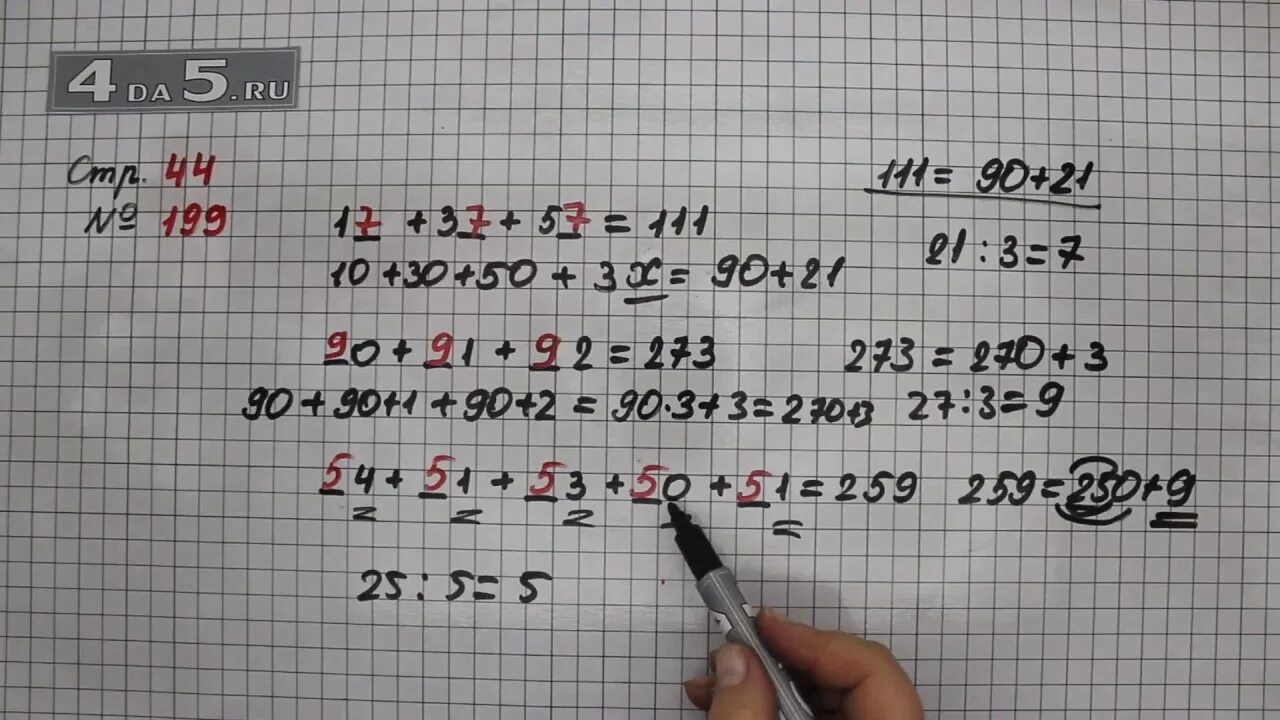 4DA5.RU
Стр. 44
№ 199
17 + 37 + 57 = 111
10 + 30 + 50 + 3x = 90 + 21
111 = 90 + 21
21 : 3 = 7
90 + 91 + 92 = 273
90 + 90 + 1 + 90 + 2 = 90 · 3 + 3 = 270 + 3
273 = 270 + 3
27 : 3 = 9
54 + 51 + 53 + 50 + 51 = 259
259 = 250 + 9
25 : 5 = 5